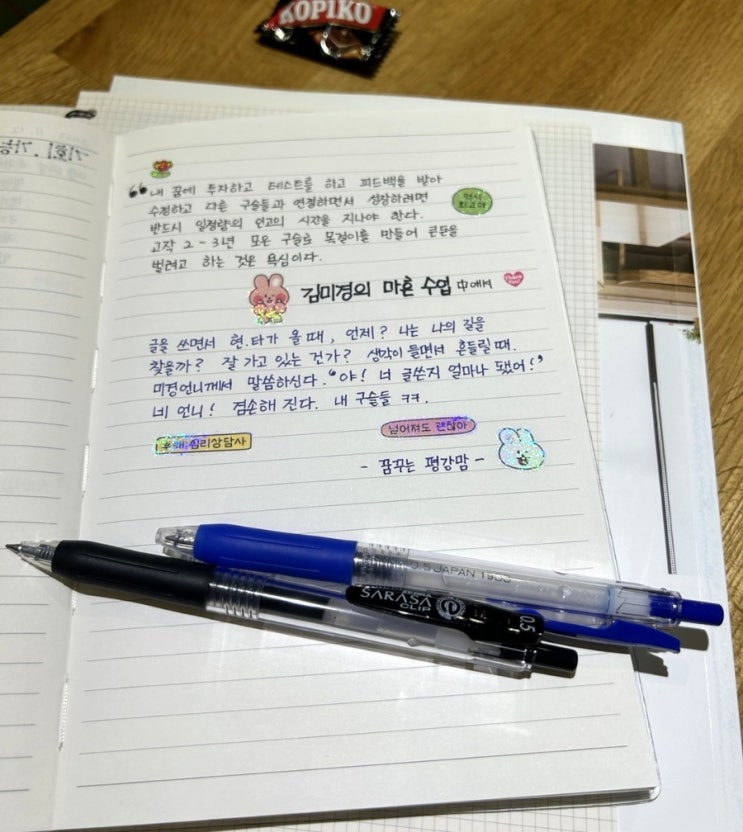 KOPIKO
내 꿈에 투자하고 테스트를 하고 피드백을 받아
수정하고 다른 구슬들과 연결하면서 성장하려면
반드시 일정량의 인고의 시간을 지나야 한다.
고작 2-3년 모은 구슬로 목걸이를 만들어 큰돈을
벌려고 하는 것은 욕심이다.
역시
최고야
김미경의 마흔 수업 中에서
THANK YOU
글을 쓰면서 현.타가 올 때, 언제? 나는 나의 길을
찾을까? 잘 가고 있는 건가? 생각이 들면서 흔들릴 때.
미경언니께서 말씀하신다. "야! 너 글쓴지 얼마나 됐어!"
네 언니! 겸손해 진다. 내 구슬들 ㅋㅋ.
심리상담사
넘어져도 괜찮아
- 꿈꾸는 평강맘 -
0.5 JAPAN
SARASA
CLIP
0.5